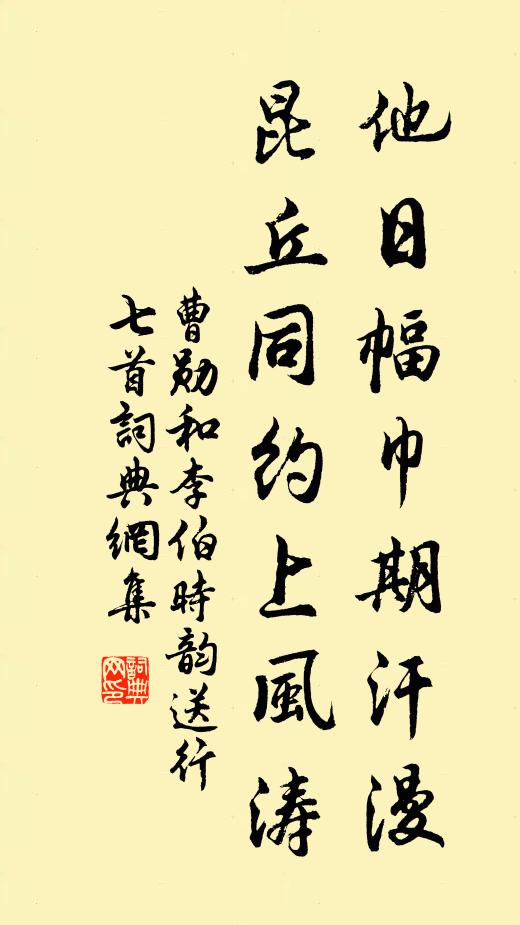 他日幅巾期汗漫
昆丘同約上風涛
曹勛和李伯時韵送行
七首詞典網集
詞典
网印